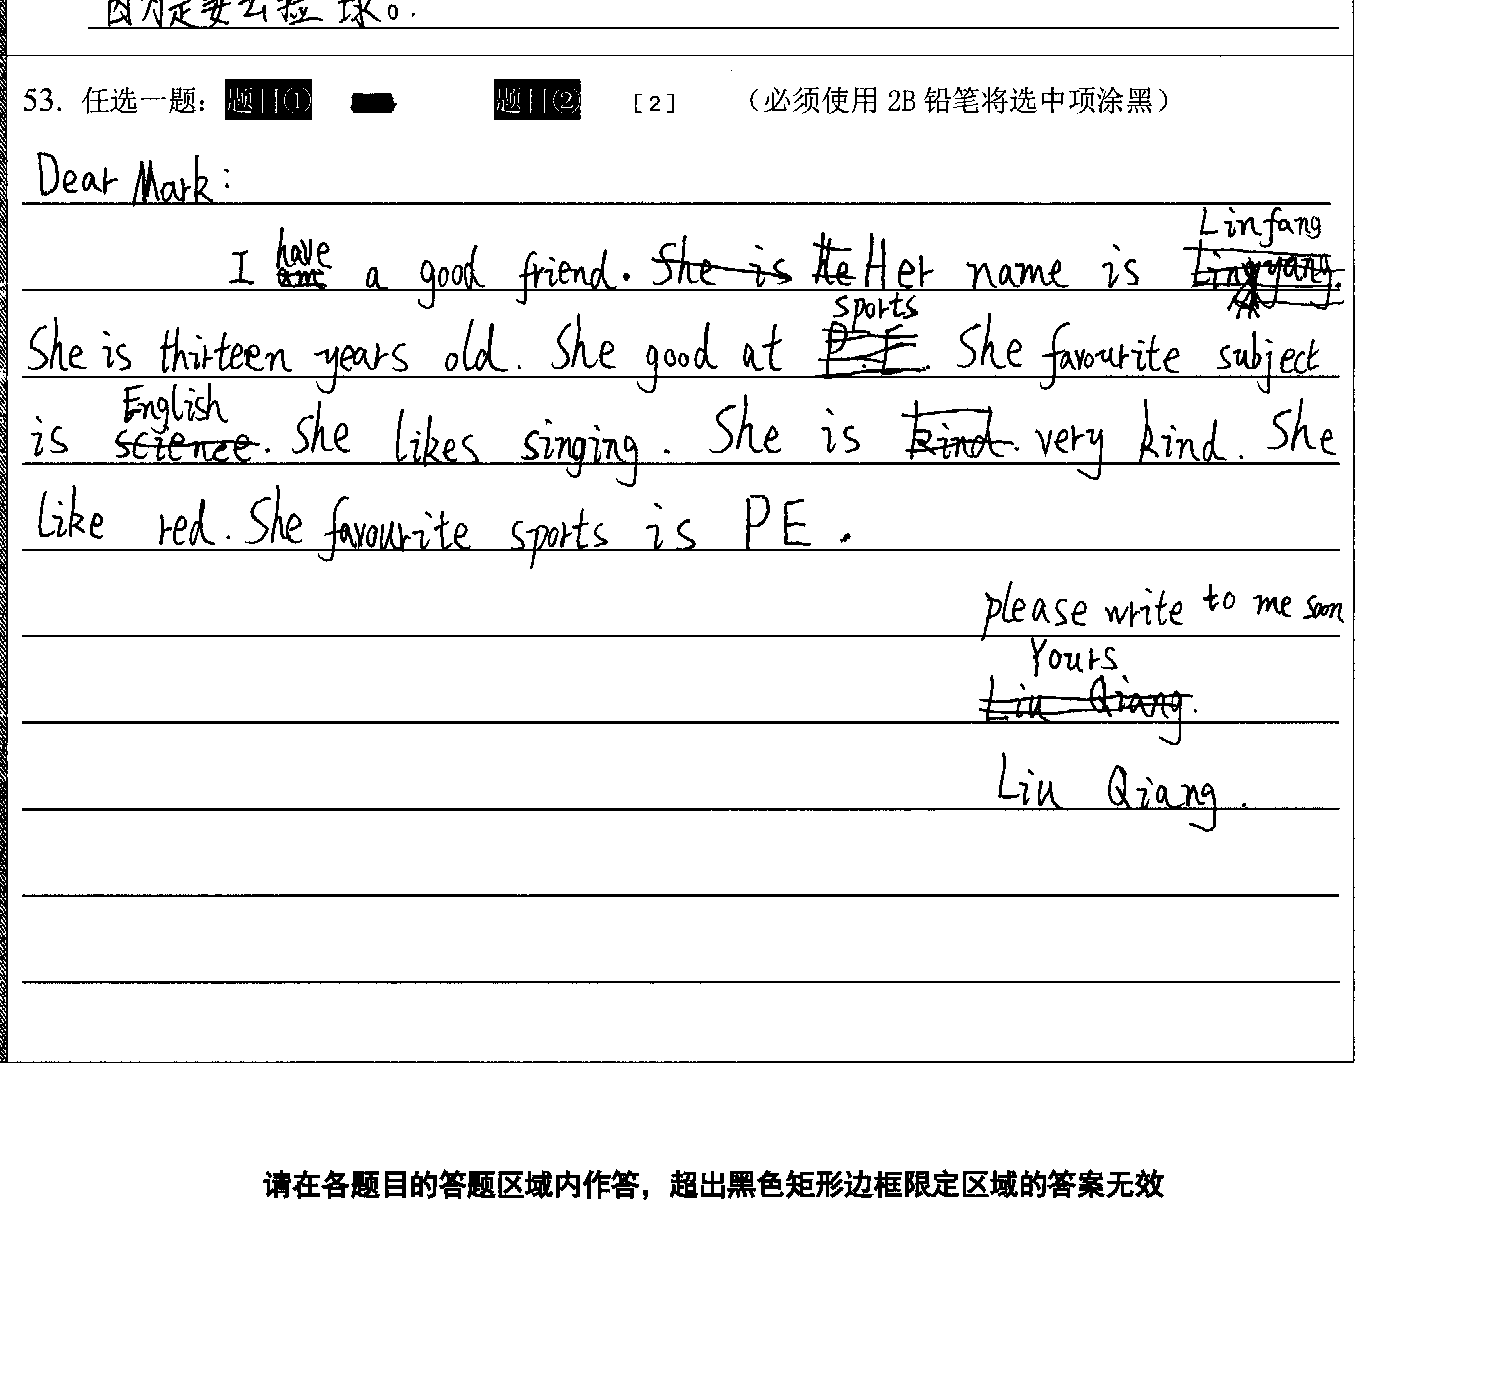 因为定要去捡球。
53. 任选一题: 题目① 题目② [2] （必须使用 2B 铅笔将选中项涂黑）
Dear Mark:
Linfang
I have a good friend. She is He Her name is
sports
She is thirteen years old. She good at P.E. She favourite subject
English
is science. She likes singing. She is kind. very kind. She
like red. She favourite sports is PE.
please write to me soon
Yours
Liu Qiang.
Liu Qiang.
请在各题目的答题区域内作答，超出黑色矩形边框限定区域的答案无效